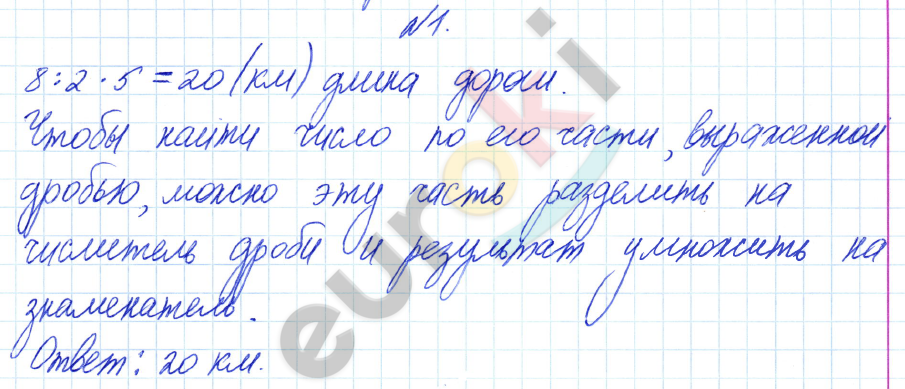 №1.
8:2·5=20 (км) длина дороги.
Чтобы найти число по его части, выраженной
дробью, можно эту часть разделить на
числитель дроби и результат умножить на
знаменатель.
Ответ: 20 км.
euroki